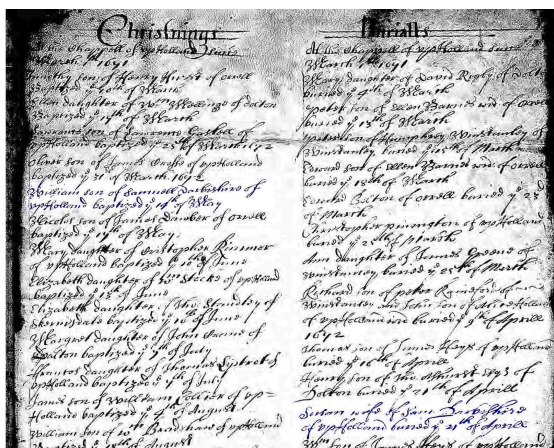 Christnings
At the Chappell of vpHolland since
March 1671
Timothy son of Henry Hirst of orrell
Baptized ye 10th of March
Ellen daughter of Wm Mollinex of Dalton
Baptized ye 17th of March
Lawrence son of Lawrence Gaskell of
vpHolland baptized ye 25th of March 1672
Oliver son of James Crosse of vpHolland
baptized ye 31 of March 1672
William son of Samuell Darbishire of
vpHolland baptized ye 14th of May
Nicolas son of James Dawber of orrell
baptized ye 17th of May
Mary daughter of Cristopher
of vpHolland baptized ye 16th of June
Elizabeth daughter of Wm Stocks of vpHolland
baptized ye of June
Elizabeth daughter of Tho: Standley of
baptized ye 16 of June
Margret daughter of John
Dalton baptized ye 7th of July
Frances daughter of Thomas of
vpHolland baptized ye of July
James son of William Collier of vp=
Holland baptized ye 4th of August
William son of Wm Bradshaw of vpHolland
of August
Burialls
At the Chappell of vpHolland since
March 1671
Mary daughter of David Rigby of Dalton
buried ye 4th of March
Peter son of Ellen Barnes wid of orrell
buried ye 13th of March
of Humphrey Winstanley of
Winstanley buried ye 15th of March
Edward son of Ellen Barnes wid: of orrell
buried ye 18th of March
Bolton of orrell buried ye 23
of March
Christopher pinington of vpHolland
buried ye 25th of March
Ann daughter of James Greene of
winstanley buried ye 25th of March
Richard son of peter of
Winstanley and John son of Alice
of vpHolland wid buried ye 9th of Aprill
1672
Thomas son of James Hays of vpHolland
buried ye 16th of Aprill
Henry son of Tho: Athurst of
Dalton buried ye 21th of Aprill
wife of Sam Darbishire
of vpHolland buried ye 21th of Aprill
Wm son of James Hays of vpHolland